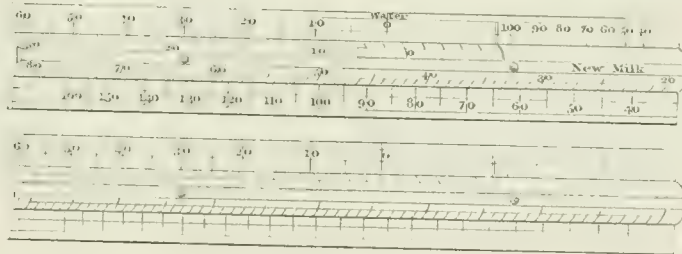 Water
60 50 40 30 20 10 0 100 90 80 70 60 50 40
20 10 0
80 70 60 50 40 30 New Milk 20
160 150 140 130 120 110 100 90 80 70 60 50 40
60 50 40 30 20 10 0